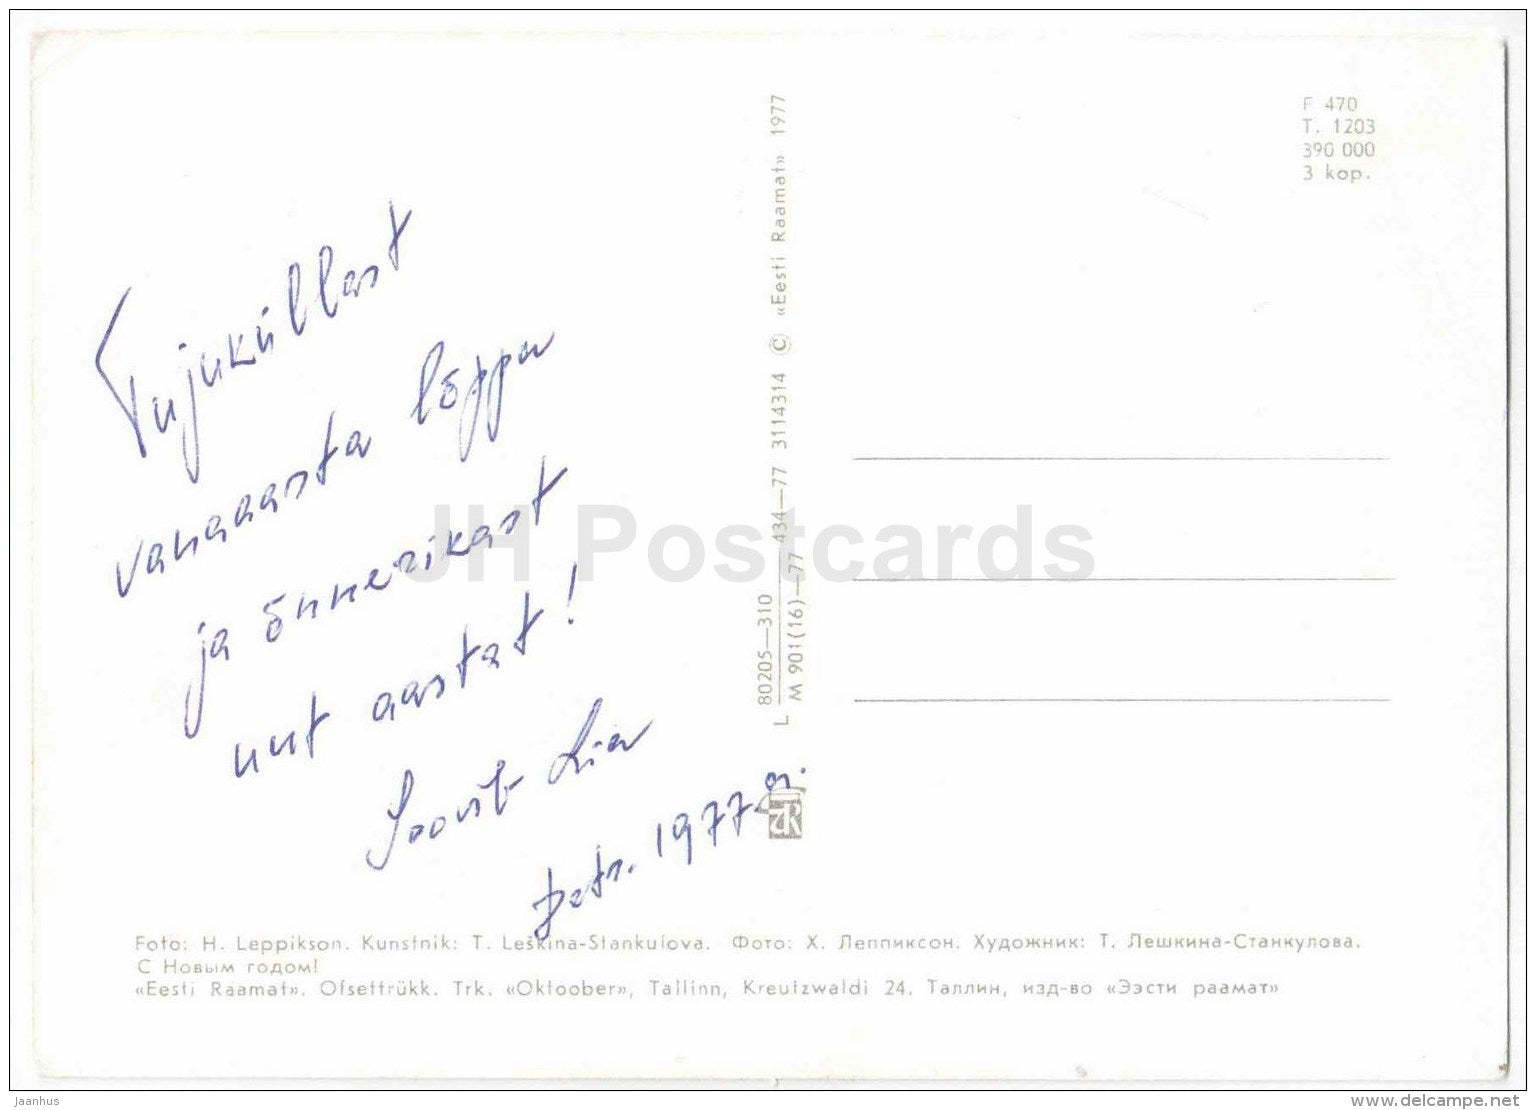 Tujuküllast
vanaaasta lõppu
ja õnnerikast
uut aastat!
Soovib Lia
1977.a.
F 470
T. 1203
390 000
3 kop.
L 80205—310 434—77 3114314 © «Eesti Raamat» 1977
M 901(16)—77
JH Postcards
Foto: H. Leppikson. Kunstnik: T. Leškina-Stankulova. Фото: Х. Леппиксон. Художник: Т. Лешкина-Станкулова.
С Новым годом!
«Eesti Raamat». Ofsettrükk. Trk. «Oktoober», Tallinn, Kreutzwaldi 24. Таллин, изд-во «Ээсти раамат»
Jaanhus
www.delcampe.net